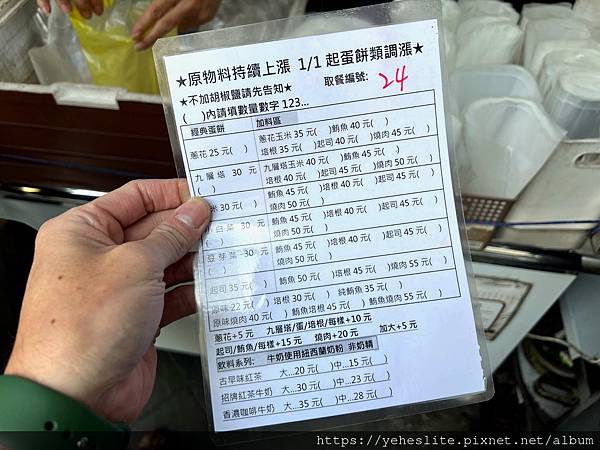 ★原物料持續上漲 1/1 起蛋餅類調漲★
★不加胡椒鹽請先告知★ 取餐編號: 24
( )內請填數量數字 123...
經典蛋餅 加料區
蔥花 25 元( )
蔥花玉米 35 元( )鮪魚 40 元( )
培根 35 元( )起司 40 元( )燒肉 45 元( )
九層塔 30 元( )
九層塔玉米 40 元( )鮪魚 45 元( )
培根 40 元( )起司 45 元( )燒肉 50 元( )
米 30 元( )
鮪魚 45 元( )培根 40 元( )起司 45 元( )
燒肉 50 元( )
白菜 30 元( )
鮪魚 45 元( )培根 40 元( )起司 45 元( )
燒肉 50 元( )
豆芽菜 30 元( )
鮪魚 45 元( )培根 40 元( )起司 45 元( )
燒肉 50 元( )
起司 35 元( )
鮪魚 50 元( )培根 45 元( )燒肉 55 元( )
原味 22 元( )培根 30 元( ) 純鮪魚 35 元( )
原味燒肉 40 元( )鮪魚培根 45 元( )鮪魚燒肉 55 元( )
蔥花+5 元 九層塔/蛋/培根/每樣+10 元
起司/鮪魚/每樣+15 元 燒肉+20 元 加大+5 元
飲料系列: 牛奶使用紐西蘭奶粉 非奶精
古早味紅茶 大...20 元( )中...15 元( )
招牌紅茶牛奶 大...30 元( )中...23 元( )
香濃咖啡牛奶 大...35 元( )中...28 元( )
https://yeheslite.pixnet.net/album